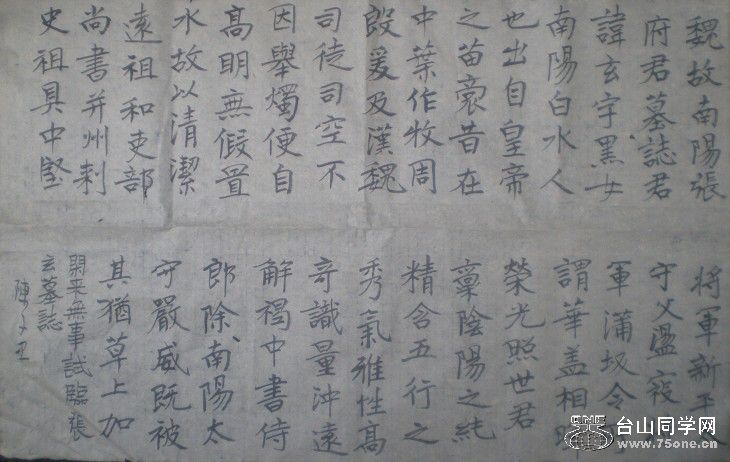 魏故南陽張
府君墓誌君
諱玄字黑女
南陽白水人
也出自皇帝
之苗裔昔在
中葉作牧周
殷爰及漢魏
司徒司空不
因舉燭便自
高明無假置
水故以清潔
遠祖和吏部
尚書并州刺
史祖具中堅
將軍新平太
守父盪寇
軍蒲坂令
謂華盖相
榮光照世君
稟陰陽之純
精含五行之
秀氣雅性高
奇識量沖遠
解褐中書侍
郎除南陽太
守嚴威既被
其猶草上加
閑來無事試臨張
玄墓誌
陳
台山同学网
www.75one.cn